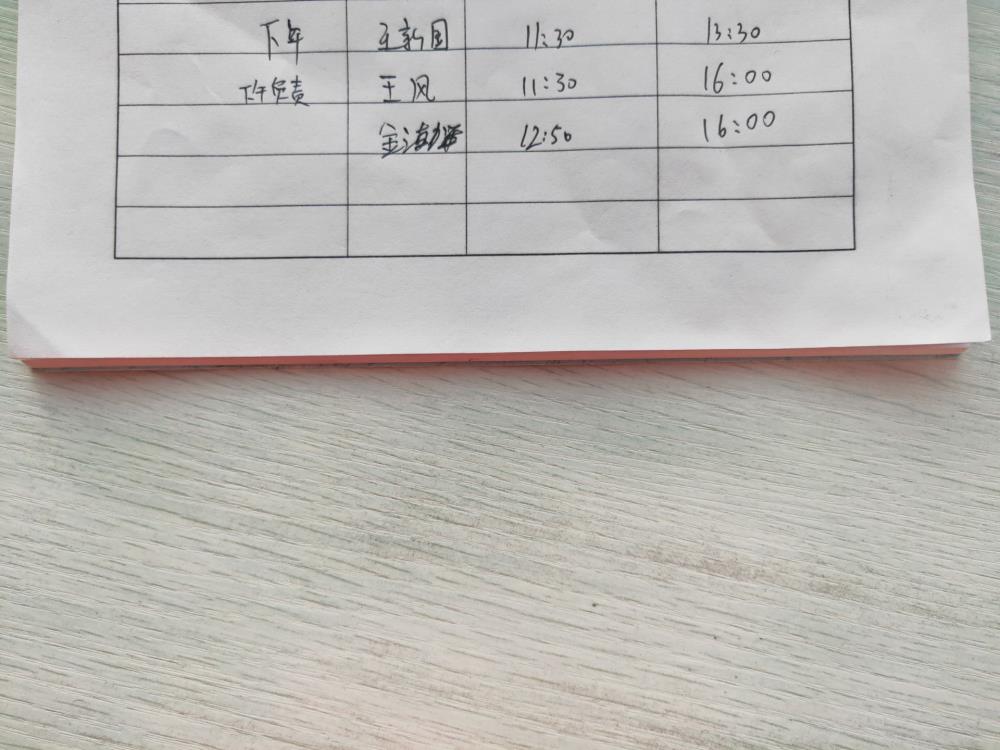 下午 王新国 11:30 13:30
下午负责 王风 11:30 16:00
金海 12:50 16:00